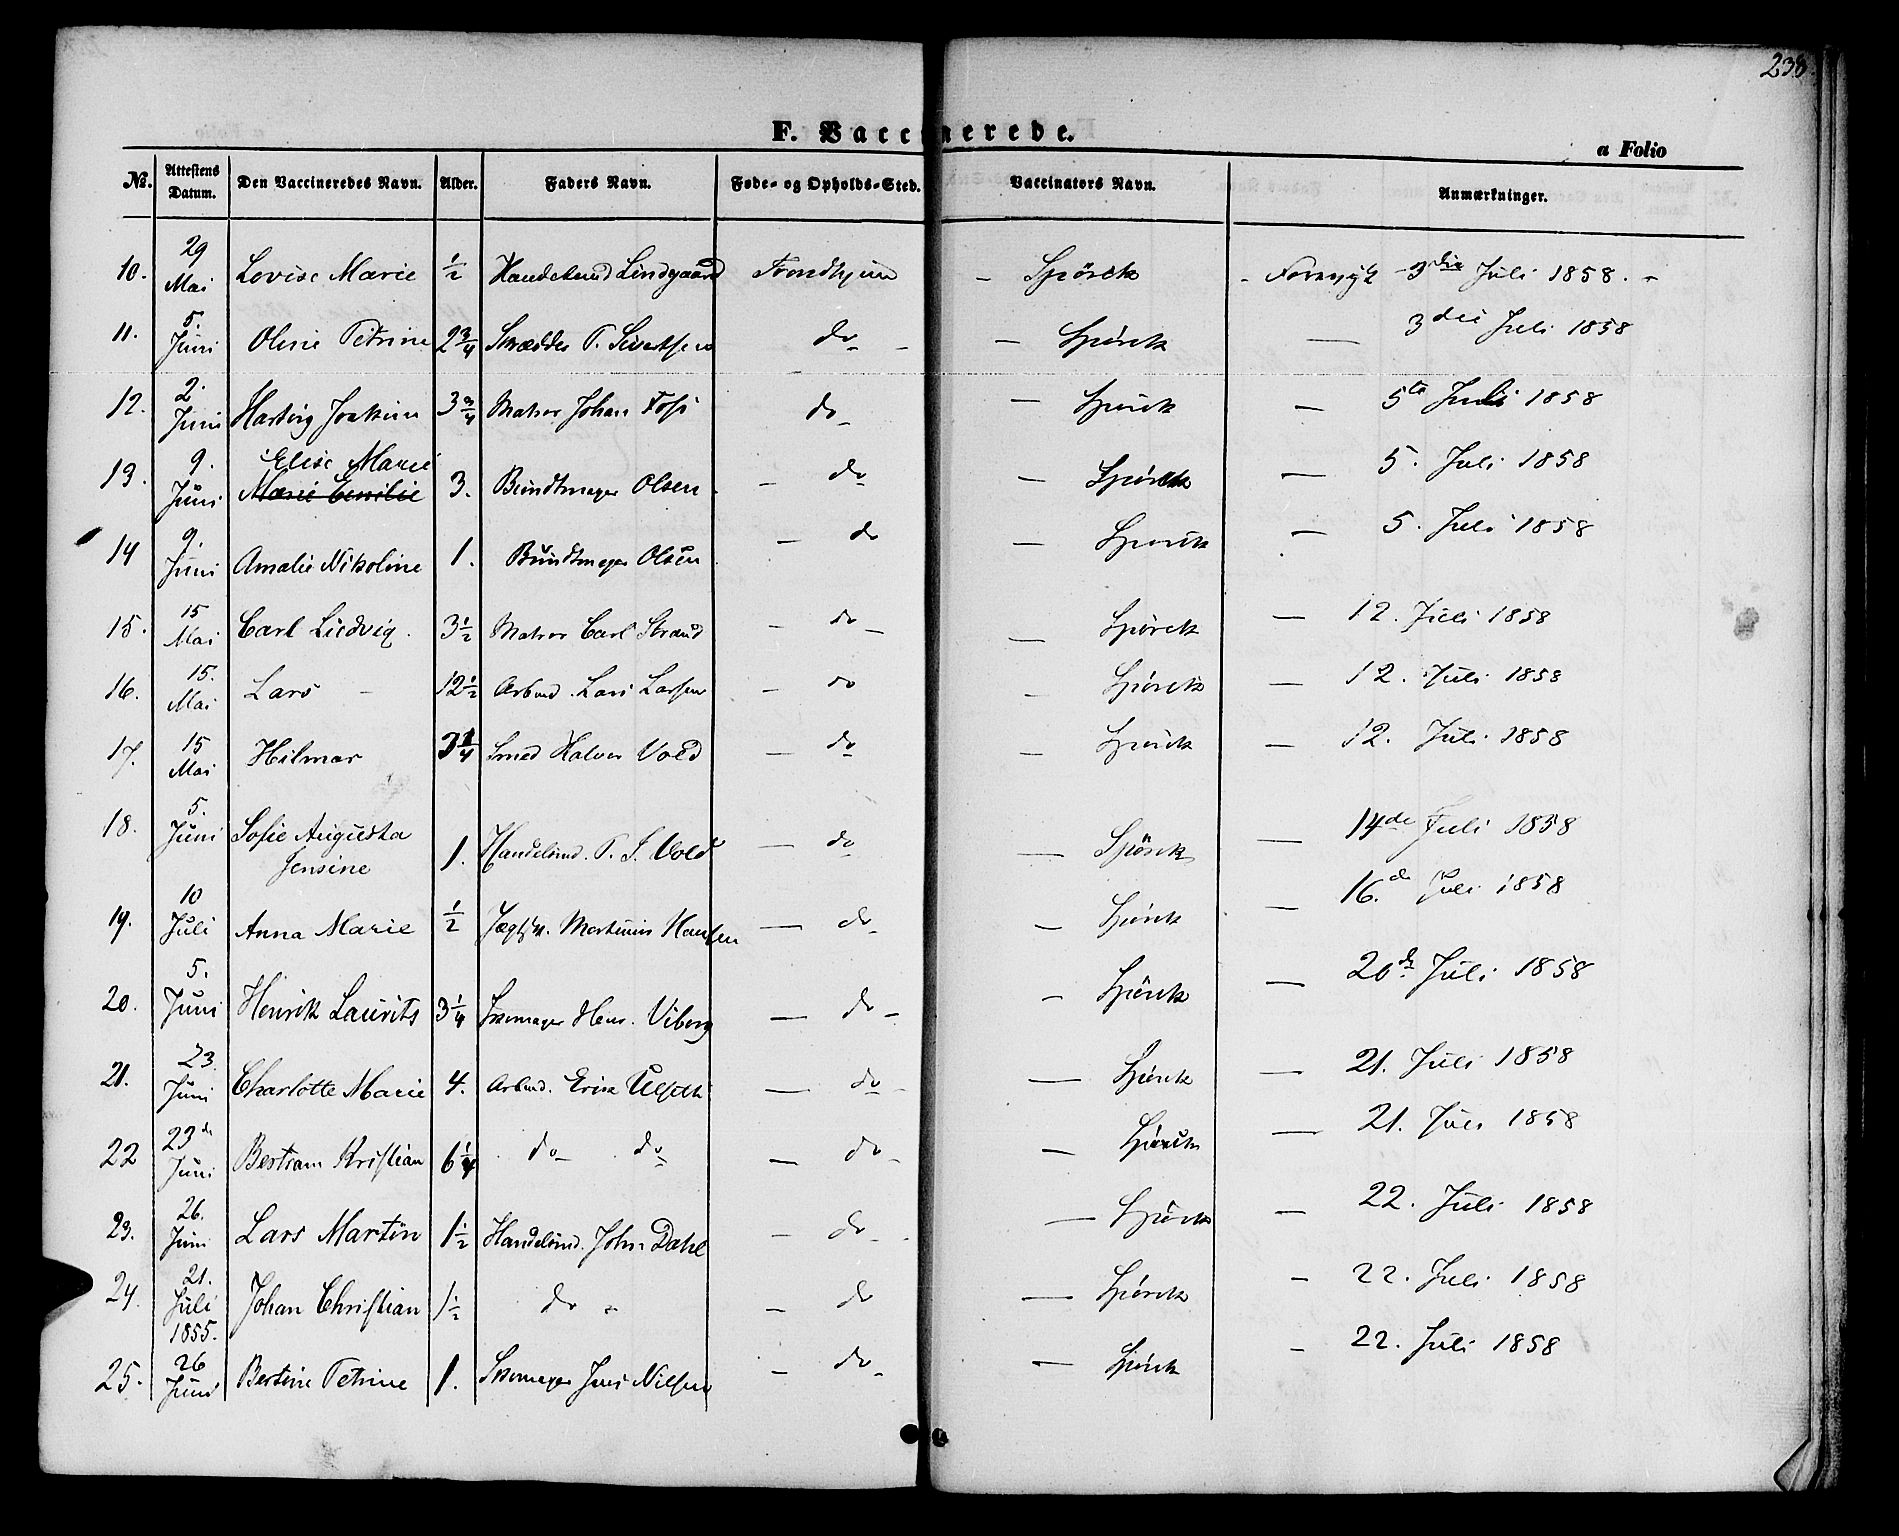 238.
F. Vaccinerede.
a Folio
No. Attestens Datum. Den Vaccineredes Navn. Alder. Faders Navn. Føde- og Opholds-Sted. Vaccinators Navn. Anmærkninger.
10. 29 Mai Lovise Marie ½ Lindgaard Trondhjem - Spörck - 3die Juli 1858. -
11. 5. Juni Oline Petrine 2¾ Skrædder P. Sivertsen do - - Spörck — 3die Juli 1858
12. 2. Juni Hartvig Joakim 3¾ Matros Johan Foss do - — Spörck — 5te Juli 1858
13. 9. Juni Elise Marie Marie Emilie 3. Bundtmager Olsen - do — Spörck — 5. Juli 1858
14 9. Juni Amalie Nikoline 1. Bundtmager Olsen — do — Spörck — 5. Juli 1858
15. 15 Mai Carl Ludvig. 3½ Matros Carl Strand — do - — Spörck — 12. Juli 1858
16. 15. Mai Lars - 12½ Arbmd. Lars Larsen — do — Spörck — 12. Juli 1858
17. 15 Mai Hilmar 3¼ Smed Halvor Vold — do — Spörck — 12. Juli 1858
18. 5. Juni Sofie Augusta Jensine 1. Handelsmd. P. S. Vold — do — Spörck — 14de Juli 1858
19. 10 Juli Anna Marie ½ Martinus Hansen — do - — Spörck — 16.de Juli 1858
20. 5. Juni Henrik Laurits 3¼ Skomager Henr. Viborg — do - — Spörck — 20de Juli 1858
21. 23. Juni Charlotte Marie 4. Arbmd. Erik Ulseth — do - — Spörck — 21. Juli 1858
22 23de Juni Bertram Kristian 6¼ do do — do - — Spörck — 21. Juli 1858
23. 26. Juni Lars Martin 1½ Handelsmd. John Dahl — do - — Spörck — 22. Juli 1858
24. 21. Juli 1855. Johan Christian 1½ do - — do — Spörck — 22. Juli 1858
25. 26 Juni Bertine Petrine 1. Skomager Jens Nilsen — do - — Spörck - 22. Juli 1858